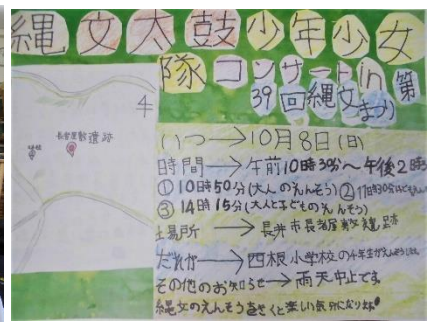 縄文太鼓少年少女
隊コンサートin第
39回縄文まつり
長者屋敷遺跡
いつ→10月8日(日)
時間→午前10時30分〜午後2時3
①10時50分(大人のえんそう)②11時30分
③14時15分(大人と子どものえんそう)
場所→長井市長者屋敷遺跡
だれが→西根小学校の4年生が
その他のお知らせ→雨天中止です。
縄文のえんそうをきくと楽しい気分になります